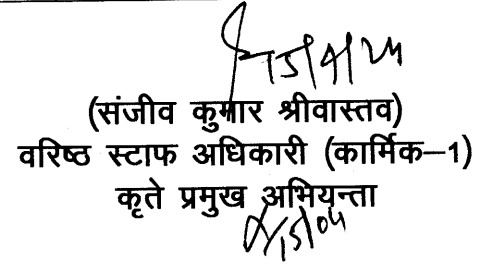 (संजीव कुमार श्रीवास्तव)
वरिष्ठ स्टाफ अधिकारी (कार्मिक–1)
कृते प्रमुख अभियन्ता